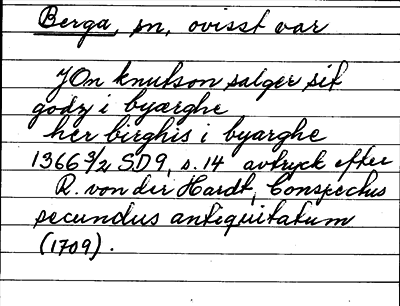 Berga, sn, ovisst var
JOn knutson sælger sit
godz i byærghe
her birghis i byarghe
1366 3/2 SD9, s. 14 avtryck efter
R. von der Hardt, Conspectus
secundus antiquitatum
(1709).